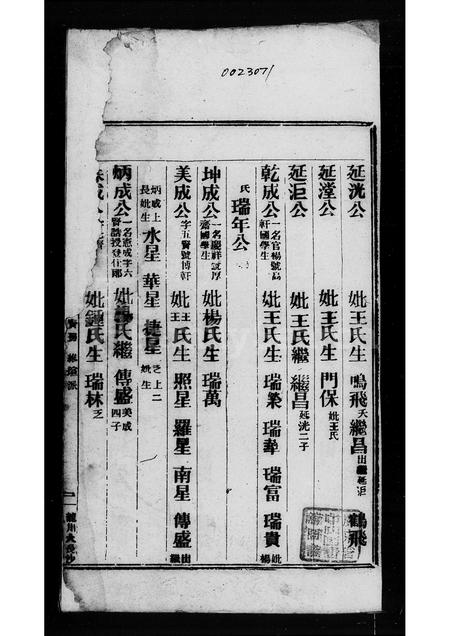 0023071
延洸公 妣王氏生 鳴飛夭 繼昌出繼延洰 鶴飛
延漟公 妣王氏生 門保妣王氏
延洰公 妣王氏繼 繼昌延洸二子
乾成公一名官楊號 軒國學生 妣王氏生 瑞榮 瑞 瑞富 瑞貴妣楊
氏 瑞年公
坤成公一名慶祥 厚齋國學生 妣楊氏生 瑞萬
美成公字五賢號博軒 妣王王氏生 照星 羅星 南星 傳盛出繼
炳成上長妣生 水星 華星 捷星乏上二妣生
炳成公一名憲成字六賢誥授登仕郎 妣楊氏繼 傳盛美成四子
成公 妣鍾氏生 瑞林乏
派
龍川大長沙